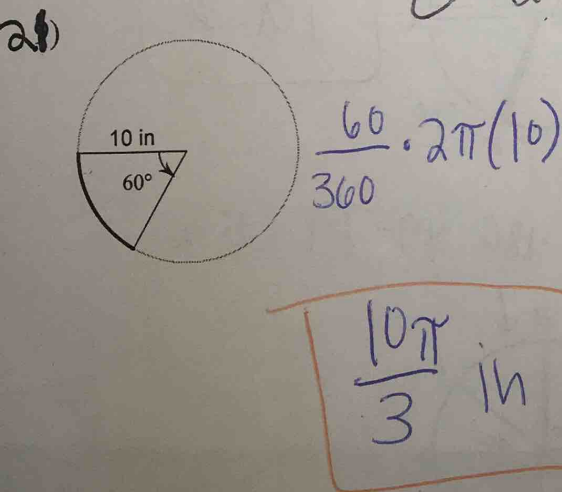 2)
10 in
60°
60/360 · 2π(10)
10π/3 in